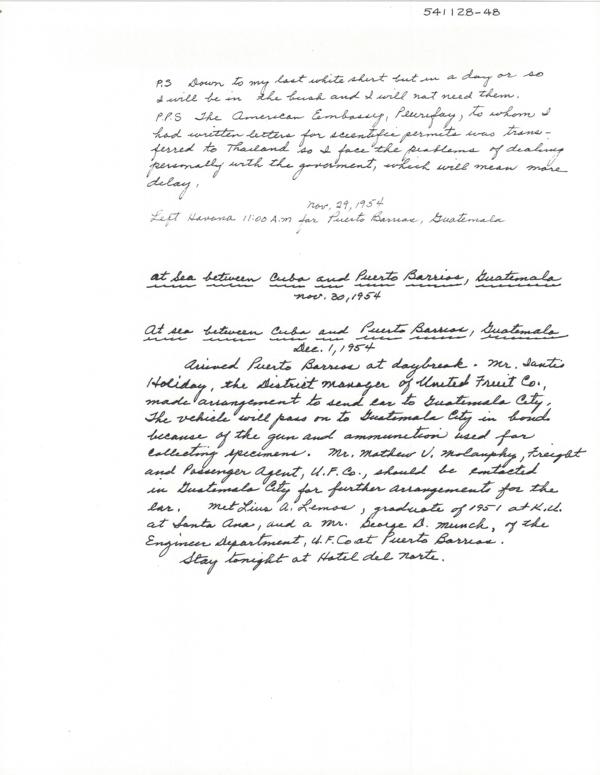 541128-48
P.S Down to my last white shirt but in a day or so
I will be in the bush and I will not need them.
P.P.S The American Embassy, Peurifoy, to whom I
had written letters for scientific permits was trans-
ferred to Thailand so I face the problems of dealing
personally with the goverment, which will mean more
delay.
Nov. 29, 1954
Left Havana 11:00 A.m for Puerto Barrios, Guatemala
at Sea between Cuba and Puerto Barrios, Guatemala
Nov. 30, 1954
At sea between Cuba and Puerto Barrios, Guatemala
Dec. 1, 1954
Arrived Puerto Barrios at daybreak. Mr.
Holiday, the District manager of United Fruit Co.,
made arrangement to send car to Guatemala City.
The vehicle will pass on to Guatemala City in bond
because of the gun and ammunition used for
collecting specimens. Mr. Mathew V. Molanphy, Freight
and Passenger Agent, U.F. Co., should be contacted
in Guatemala City for further arrangements for the
car. Met A. Lemos, graduate of 1951 at K.U.
at Santa Ana, and a Mr. George D. Munch, of the
Engineer Department, U.F.Co at Puerto Barrios.
Stay tonight at Hotel del Norte.